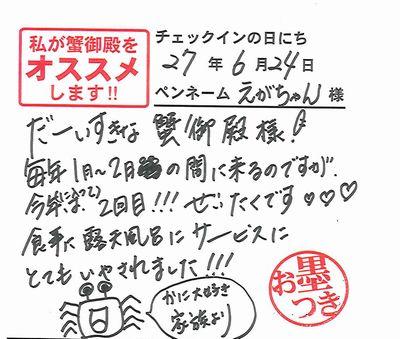 私が蟹御殿を
オススメ
します!!
チェックインの日にち
27年6月24日
ペンネーム えがちゃん 様
だーいすきな 蟹御殿様!
毎年1月〜2月の間に来るのですが、
今年は(に入って)2回目!!! ぜいたくです♡♡♡
食事に露天風呂にサービスに
とてもいやされました!!!
かに大好き
家族より
お墨つき